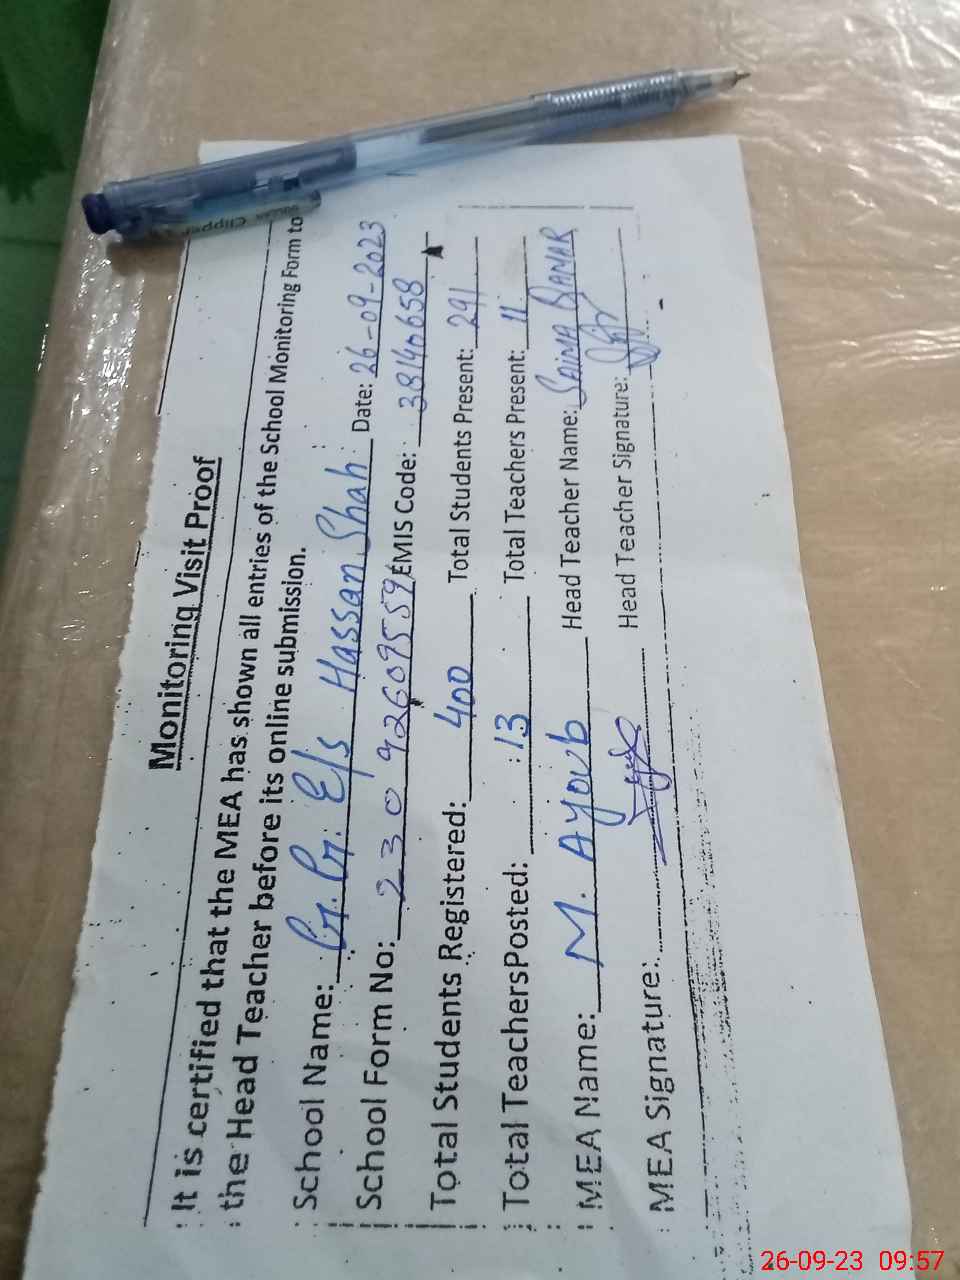 Monitoring Visit Proof
It is certified that the MEA has shown all entries of the School Monitoring Form to
the Head Teacher before its online submission.
School Name: G. G. E/s Hassan Shah Date: 26-09-2023
School Form No: 230 92609559 EMIS Code: 38140658
Total Students Registered: 400 Total Students Present: 291
Total TeachersPosted: 13 Total Teachers Present: 11
MEA Name: M. Ayoub Head Teacher Name: SAIMA QAMAR
MEA Signature: Head Teacher Signature:
Clipper
26-09-23 09:57